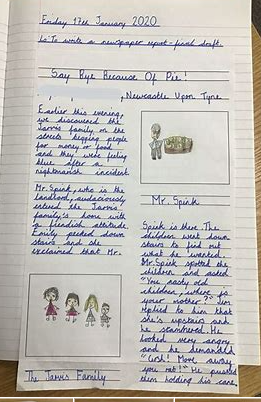 Friday 17th January 2020
Lo: To write a newspaper report - final draft.
Say Bye Because Of Pie!
, Newcastle Upon Tyne
Earlier this evening,
we discovered the
Jarvis family on the
streets begging people
for money or food
and they were feeling
blue after a
nightmarish incident.
Mr. Spink, who is the
landlord, audaciously
entered the Jarvis
family's home with
a fiendish attitude.
Emily peeked down
stairs and she
exclaimed that Mr.
The Jarvis Family
Mr. Spink
Spink is there. The
children went down
stairs to find out
what he wanted.
Mr. Spink spotted the
children and asked
"You nasty old
children, where is
your mother?" Jim
replied to him that
she's upstairs and
he stammered. He
looked very angry
and he demanded
"Gosh! Move away,
you rat!" He pushed
them holding his cane